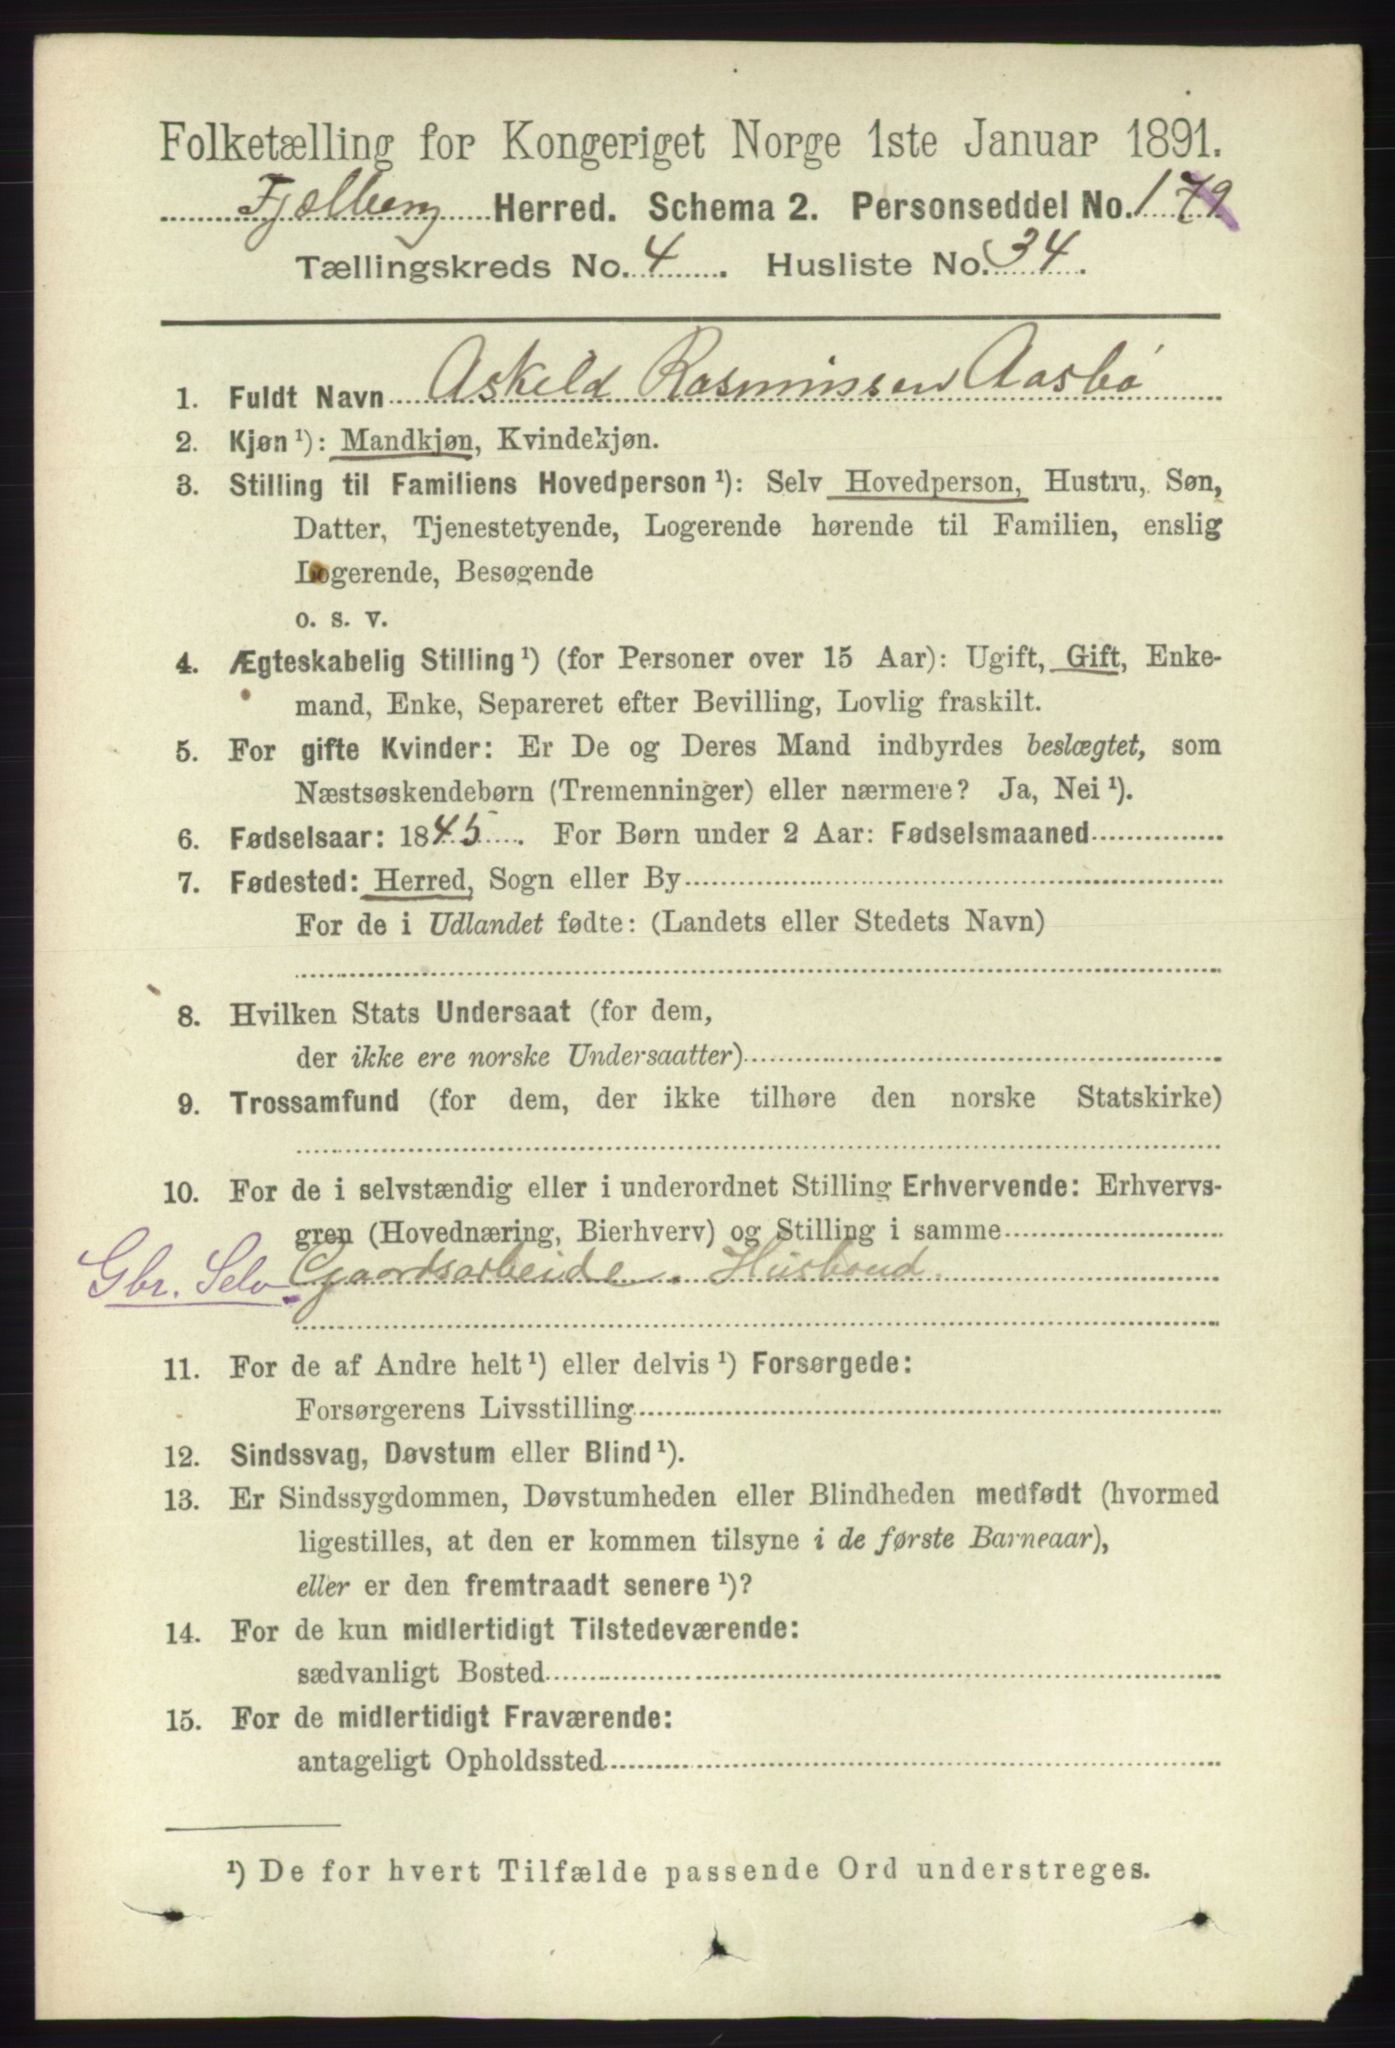 Folketælling for Kongeriget Norge 1ste Januar 1891.
Fjelberg Herred. Schema 2. Personseddel No. 179
Tællingskreds No. 4. Husliste No. 34.
1. Fuldt Navn Askeld Rasmussen Aasbø
2. Kjøn ¹): Mandkjøn, Kvindekjøn.
3. Stilling til Familiens Hovedperson ¹): Selv Hovedperson, Hustru, Søn,
Datter, Tjenestetyende, Logerende hørende til Familien, enslig
Logerende, Besøgende
o. s. v.
4. Ægteskabelig Stilling ¹) (for Personer over 15 Aar): Ugift, Gift, Enke-
mand, Enke, Separeret efter Bevilling, Lovlig fraskilt.
5. For gifte Kvinder: Er De og Deres Mand indbyrdes beslægtet, som
Næstsøskendebørn (Tremenninger) eller nærmere? Ja, Nei ¹).
6. Fødselsaar: 1845. For Børn under 2 Aar: Fødselsmaaned
7. Fødested: Herred, Sogn eller By
For de i Udlandet fødte: (Landets eller Stedets Navn)
8. Hvilken Stats Undersaat (for dem,
der ikke ere norske Undersaatter)
9. Trossamfund (for dem, der ikke tilhøre den norske Statskirke)
10. For de i selvstændig eller i underordnet Stilling Erhvervende: Erhvervs-
gren (Hovednæring, Bierhverv) og Stilling i samme
Gbr. Selv. Gaardsarbeide. Husbond.
11. For de af Andre helt ¹) eller delvis ¹) Forsørgede:
Forsørgerens Livsstilling
12. Sindssvag, Døvstum eller Blind ¹).
13. Er Sindssygdommen, Døvstumheden eller Blindheden medfødt (hvormed
ligestilles, at den er kommen tilsyne i de første Barneaar),
eller er den fremtraadt senere ¹)?
14. For de kun midlertidigt Tilstedeværende:
sædvanligt Bosted
15. For de midlertidigt Fraværende:
antageligt Opholdssted
¹) De for hvert Tilfælde passende Ord understreges.